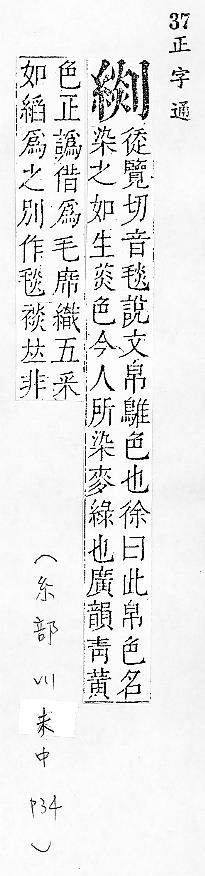 37 正字通
徒覽切音毯說文帛騅色也徐曰此帛色名
染之如生菼色今人所染麥綠也廣韻靑黃
色正譌借爲毛席織五采
如縚爲之別作毯裧非
（糸部 川 未中 P34）